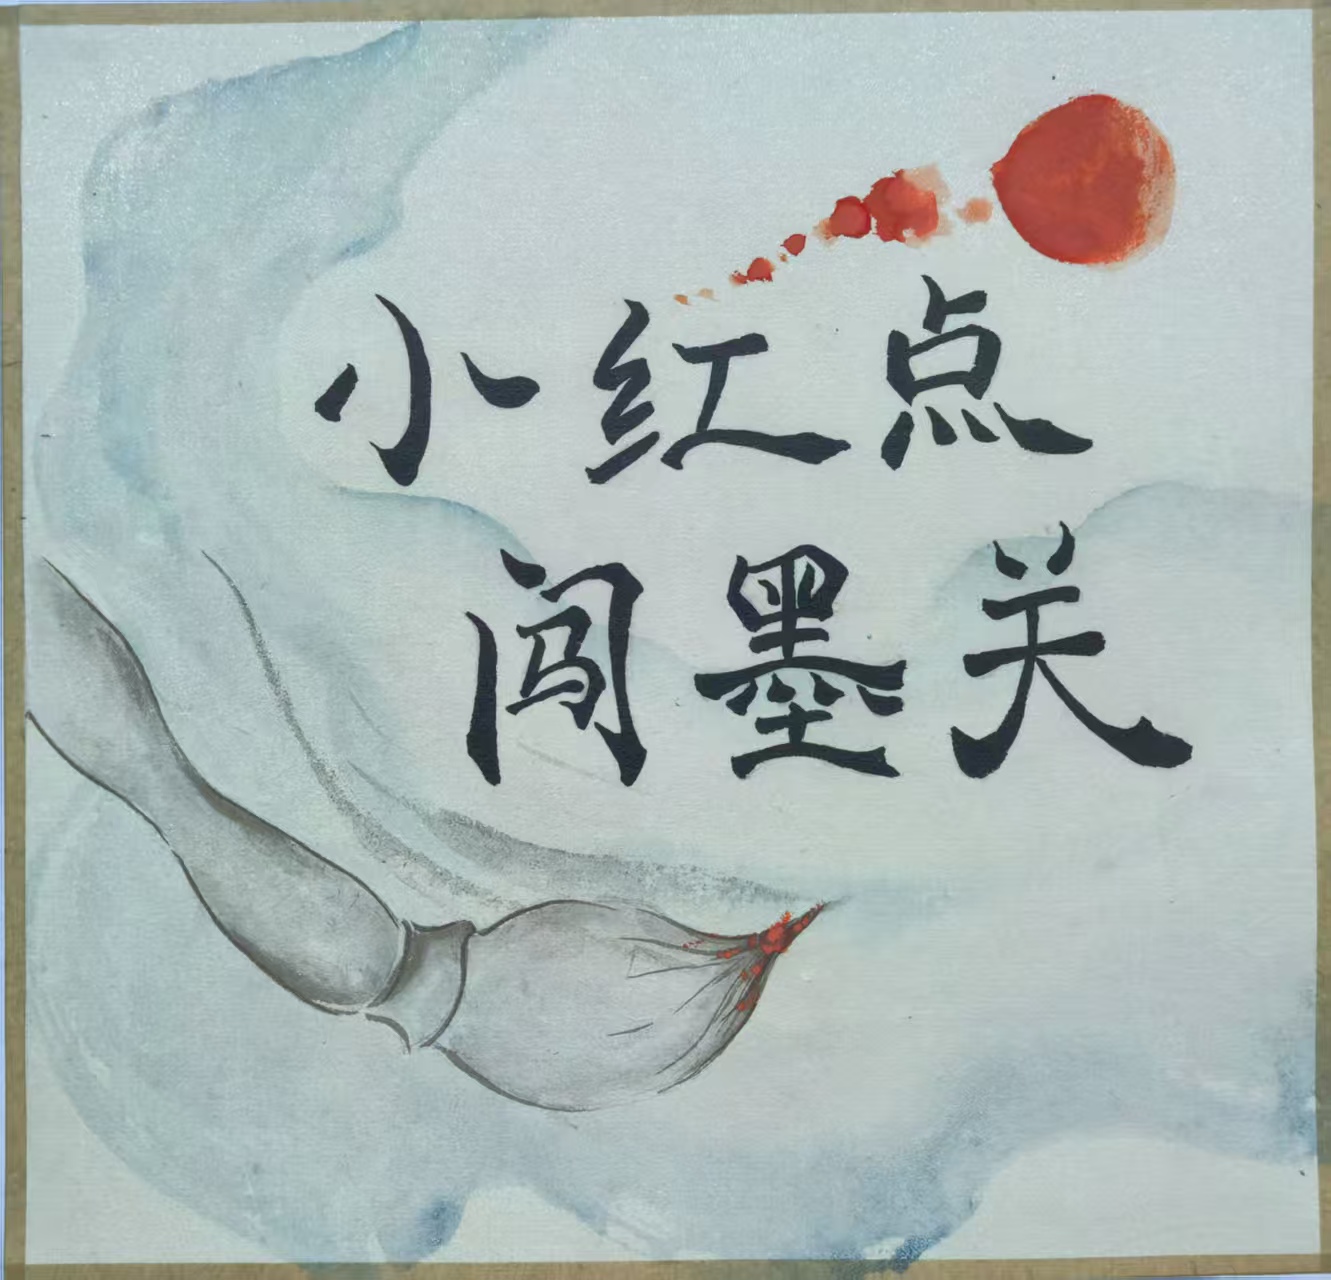 小红点
闯墨关